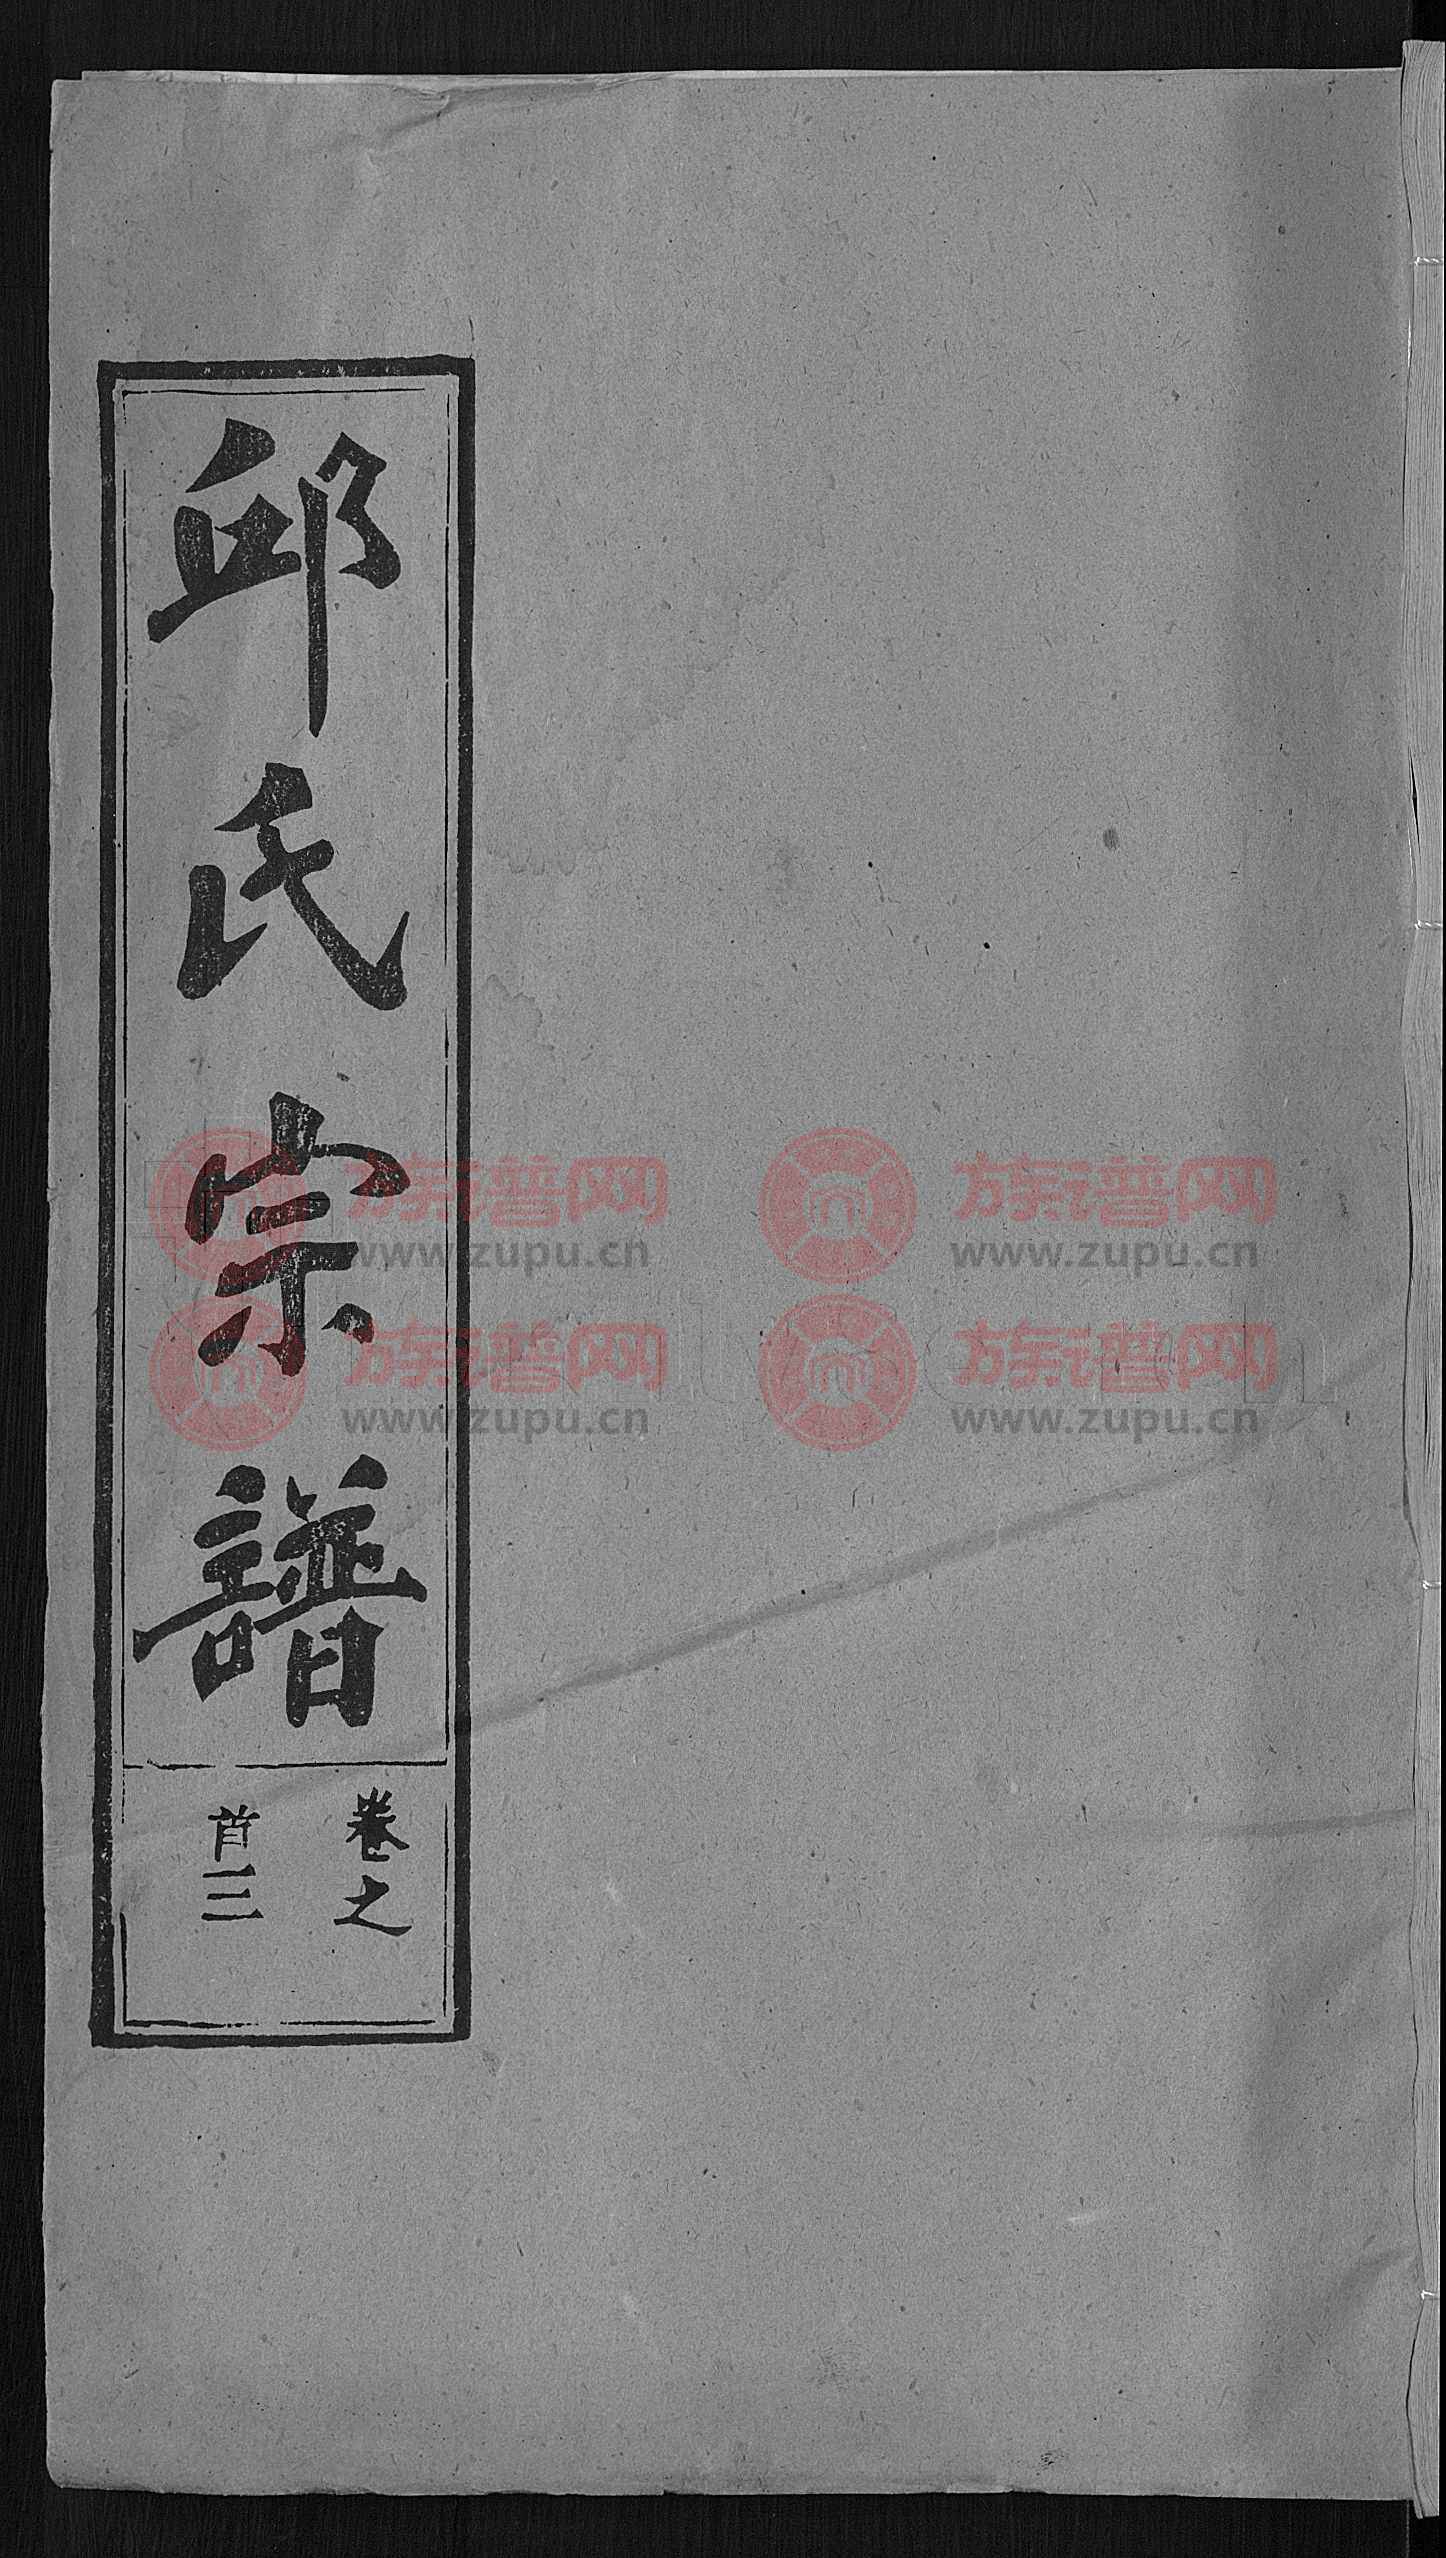 邱氏宗譜
卷之
首三
族谱网 族谱网
www.zupu.cn www.zupu.cn
族谱网 族谱网
www.zupu.cn www.zupu.cn